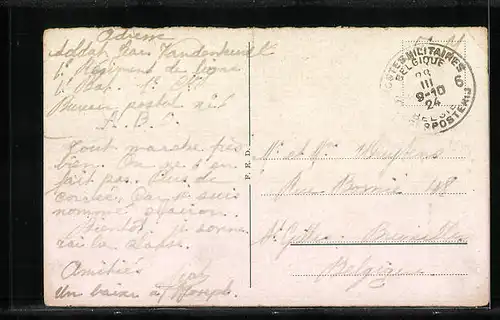 Adresse
Soldat Jan Vandenheuvel
1e Régiment de ligne
1e Bat.
Bureau postal n: 6
A. B. O.
Tout marche très
bien. On ne s'en
fait pas. Plus de
corvée. Car je suis
nommé clairon.
Bientôt je sonne-
rai la classe.
Amitiés
Un baiser à Joseph.
P. E. D.
POSTES MILITAIRES 6
BELGIQUE
28
III
9-10
24
BELGIE
LEGERPOSTERIJ
M. et Mme
Rue Bosnie 48
St Gilles Bruxelles
Belgique